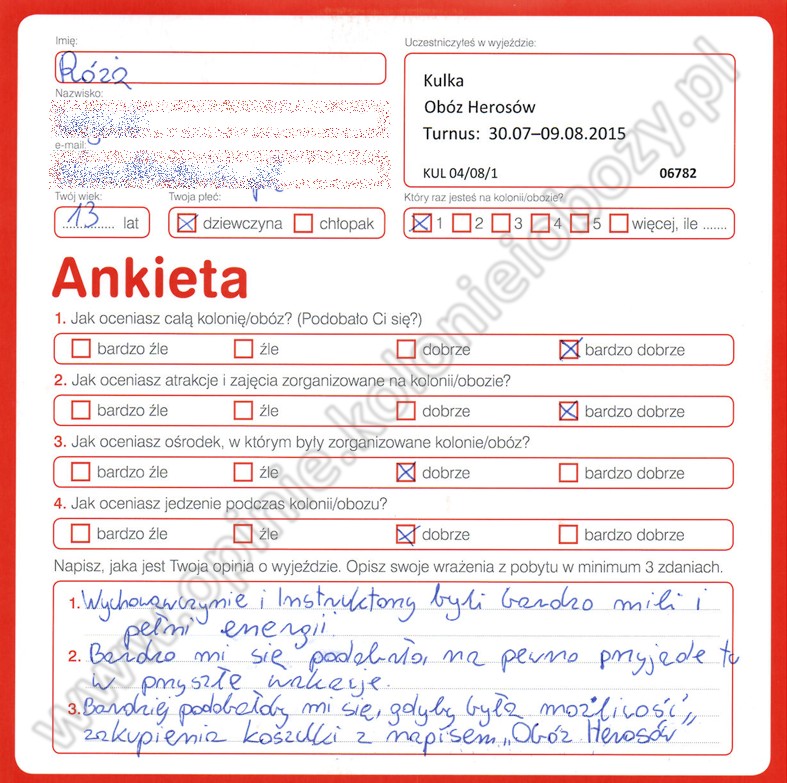 Imię:
Róża
Uczestniczyłeś w wyjeździe:
Kulka
Obóz Herosów
Turnus: 30.07–09.08.2015
KUL 04/08/1 06782
Nazwisko:
e-mail:
Twój wiek: Twoja płeć: Który raz jesteś na kolonii/obozie?
13 lat dziewczyna chłopak 1 2 3 4 5 więcej, ile .......
Ankieta
1. Jak oceniasz całą kolonię/obóz? (Podobało Ci się?)
bardzo źle źle dobrze bardzo dobrze
2. Jak oceniasz atrakcje i zajęcia zorganizowane na kolonii/obozie?
bardzo źle źle dobrze bardzo dobrze
3. Jak oceniasz ośrodek, w którym były zorganizowane kolonie/obóz?
bardzo źle źle dobrze bardzo dobrze
4. Jak oceniasz jedzenie podczas kolonii/obozu?
bardzo źle źle dobrze bardzo dobrze
Napisz, jaka jest Twoja opinia o wyjeździe. Opisz swoje wrażenia z pobytu w minimum 3 zdaniach.
1. Wychowawczynie i Instruktorzy byli bardzo mili i
pełni energii.
2. Bardzo mi się podobało, na pewno przyjadę tu
w przyszłe wakacje.
3. Bardziej podobałoby mi się, gdyby była możliwość
zakupienia koszulki z napisem „Obóz Herosów"
www.opinie.kolonieiobozy.pl